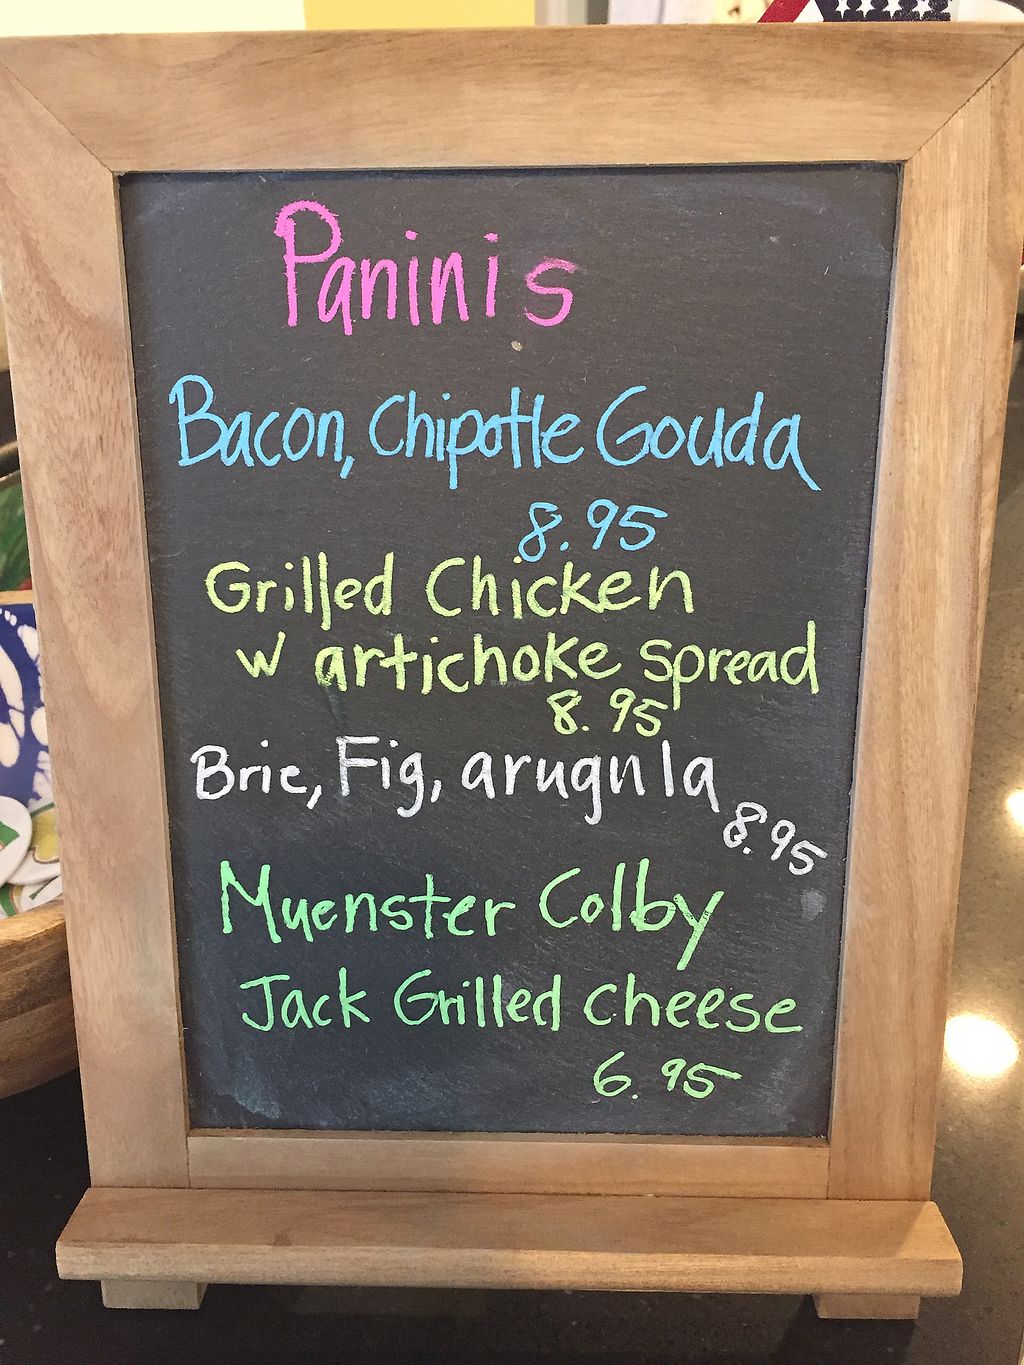 Paninis
Bacon, Chipotle Gouda
8.95
Grilled Chicken
w artichoke spread
8.95
Brie, Fig, arugula
8.95
Muenster Colby
Jack Grilled cheese
6.95